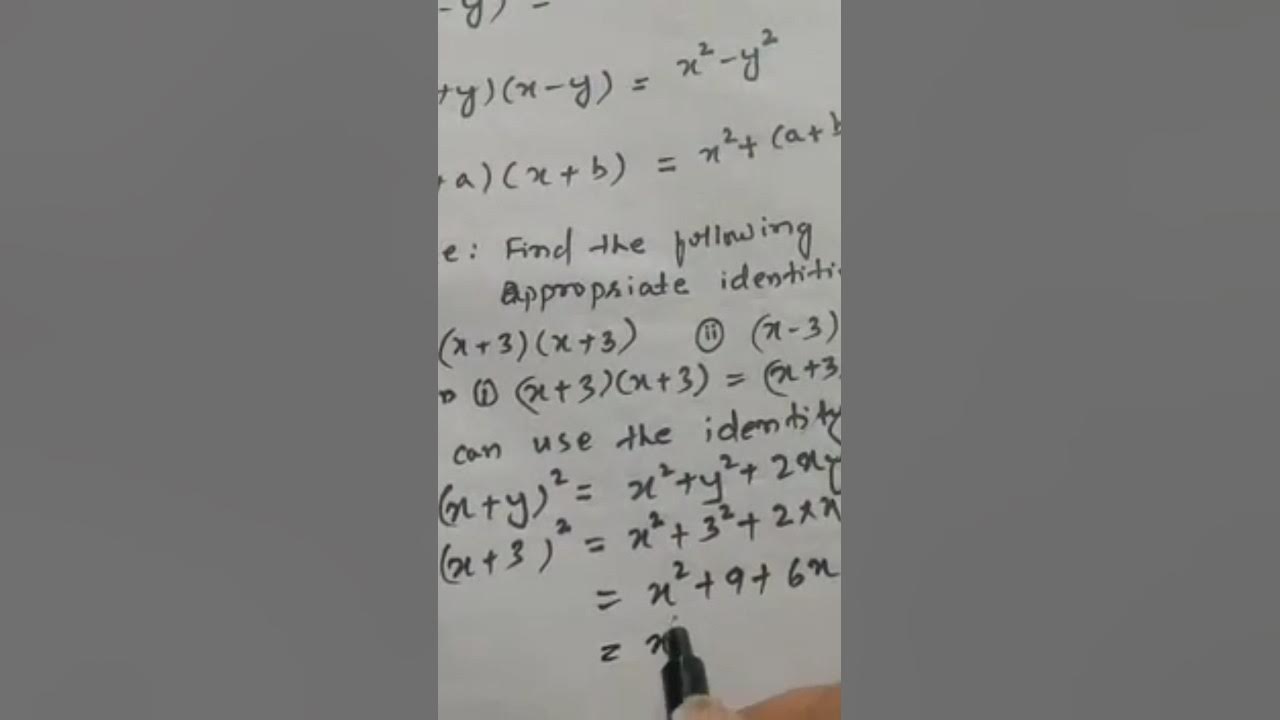 -y) =
+y)(x-y) = x²-y²
+a)(x+b) = x²+(a+b
e: Find the following
appropriate identitie
(x+3)(x+3) ⓘⓘ (x-3)
ⓘ (x+3)(x+3) = (x+3
can use the identity
(x+y)² = x²+y²+2xy
(x+3)² = x²+3²+2×x
= x²+9+6x
= x